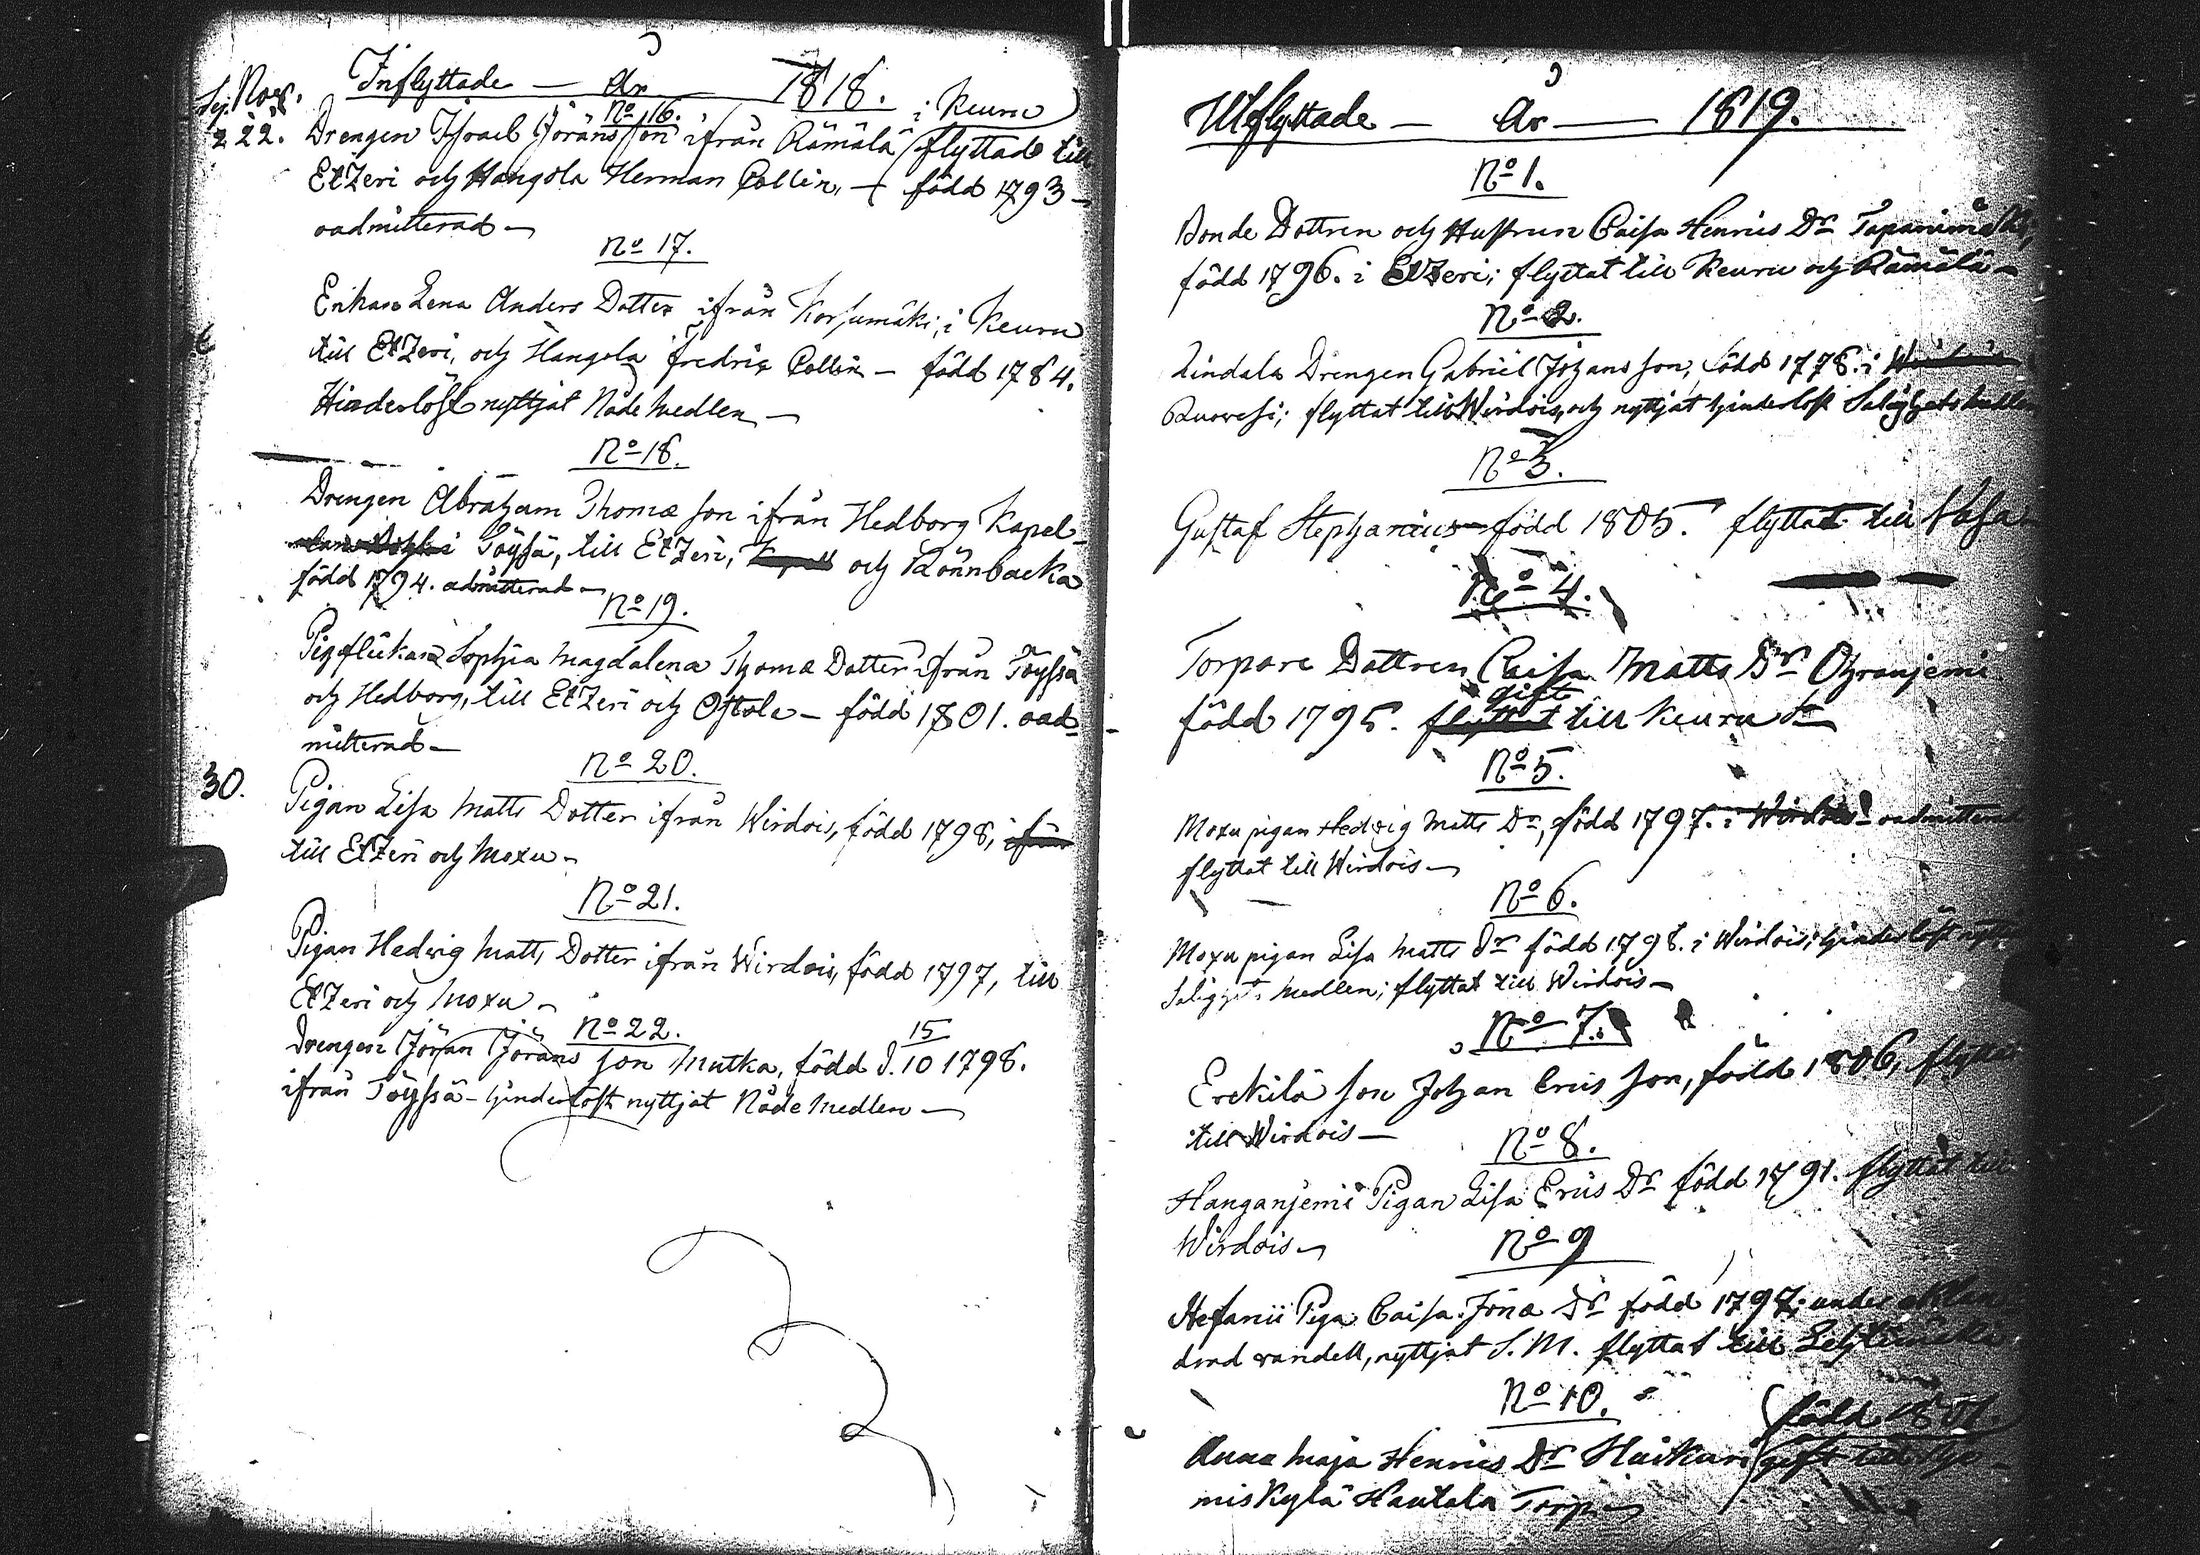 Inflyttade — År — 1818.
No 16. i Keuru
222. Drengen Israel Jöransson ifrån Rämälä flyttade till
EtZeri och Hangola Herman Collin, — född 1793 —
oadmitterad —
No 17.
Enkan Lena Anders Dotter ifrån Korsumäki, i Keuru
till EtZeri, och Hangola Fredric Collin — född 1784.
Hinderlöst nyttjat Nåde medlen —
No 18.
Drengen Abraham Thomæ son ifrån Hedborg Kapel-
i Töysä, till EtZeri, och Rönnbacka
född 1794. admitterad —
No 19.
Pigflickan Sophia Magdalena Thomæ Dotter ifrån Töysä
och Hedborg, till EtZeri och Ostola — född 1801. oad-
mitterad —
No 20.
30. Pigan Lisa Matts Dotter ifrån Wirdois, född 1798, ifrån
till EtZeri och Moxu —
No 21.
Pigan Hedvig Matts Dotter ifrån Wirdois, född 1797, till
EtZeri och Moxu —
No 22.
Drengen Jöran Jörans son Mutka, född d. 15/10 1798.
ifrån Töysä — hinderlöst nyttjat Nåde medlen —
Utflyttade — År — 1819.
No 1.
Bonde Dottren och Hustrun Caisa Henrics Dr Tapanimäki,
född 1796. i EtZeri; flyttat till Keuru och Rämälä —
No 2.
Lindala Drengen Gabriel Johans son, född 1778. i
Ruovesi; flyttat till Wirdois, och nyttjat hinderlöst Salighets medlen
No 3.
Gustaf Stephanius född 1805. flyttat till Vasa
No 4.
Torpare Dottren Caisa Matts Dr Ohranjemi
född 1795. flyttat gift till Keuru Sn
No 5.
Moxu pigan Hedvig Matts Dr, född 1797. i Wirdois — oadmitterad
flyttat till Wirdois —
No 6.
Moxu pigan Lisa Matts Dr född 1798. i Wirdois; hinderlöst
Salighets medlen; flyttat till Wirdois —
No 7.
Erckilä son Johan Erics son, född 1806, flyttat
till Wirdois —
No 8.
Hanganjemi Pigan Lisa Erics Dr född 1791. flyttat till
Wirdois —
No 9
Stefanii Piga Caisa Jonæ Dr född 1797;
vandell, nyttjat S. M. flyttat till
No 10.
född 1801.
Anna Maja Henrics Dr gift till
miskylä Hautala Torp —